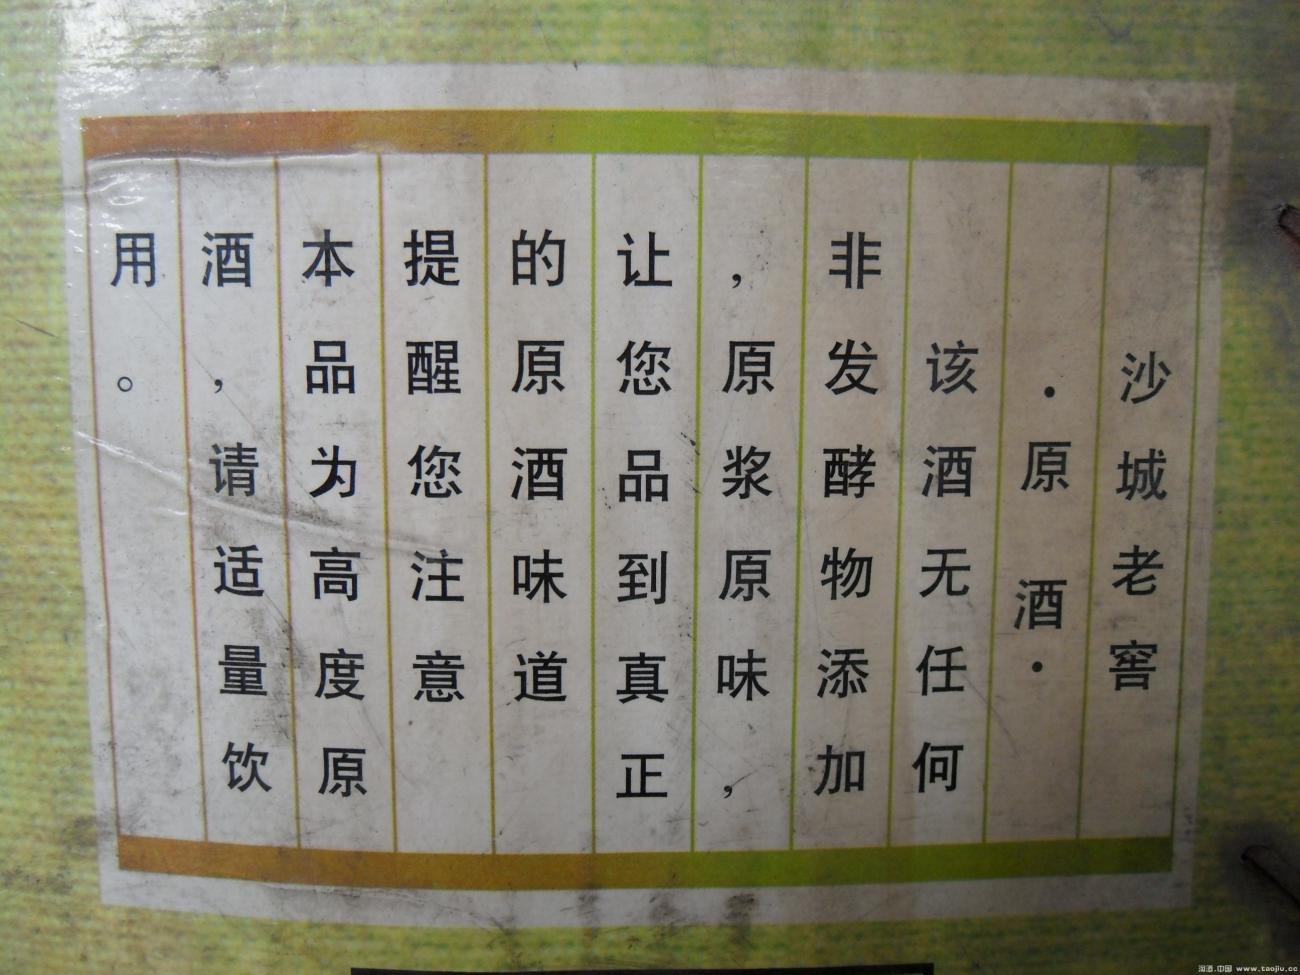 沙城老窖
·原酒·
该酒无任何
非发酵物添加
，原浆原味，
让您品到真正
的原酒味道
提醒您注意
本品为高度原
酒，请适量饮
用。
淘酒.中国 www.taojiu.cc